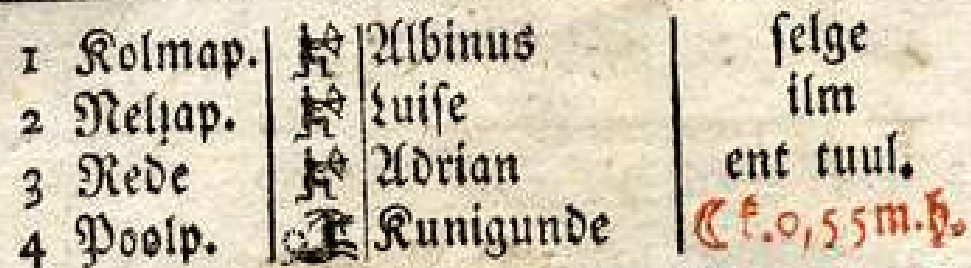 1 Kolmap. Albinus ſelge
2 Neljap. Luiſe ilm
3 Rede Adrian ent tuul.
4 Poolp. Kunigunde ☾ k. 0, 55 m. h.